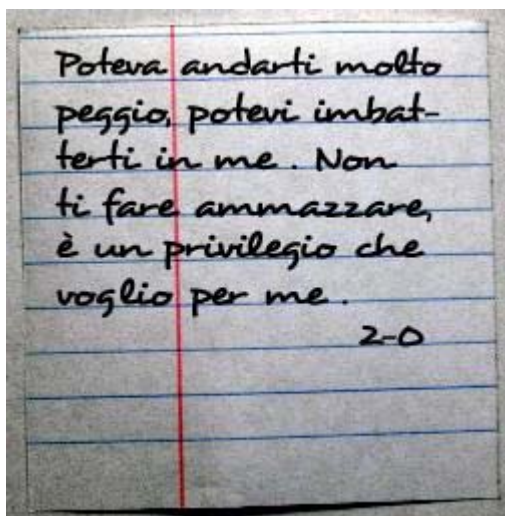 Poteva andarti molto
peggio, potevi imbat-
terti in me. Non
ti fare ammazzare,
è un privilegio che
voglio per me.
2-0